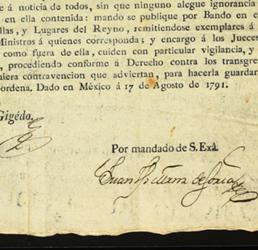 á noticia de todos, sin que ninguno alegue ignorancia
en ella contenida: mando se publique por Bando en e
llas, y Lugares del Reyno, remitiendose exemplares á
Ministros á quienes corresponda; y encargo á los Jueces
como fuera de ella, cuiden con particular vigilancia, y
, procediendo conforme á Derecho contra los transgre
iera contravencion que adviertan, para hacerla guardar
ordena. Dado en México á 17 de Agosto de 1791.
Gigédo.
Por mandado de S. Exâ.